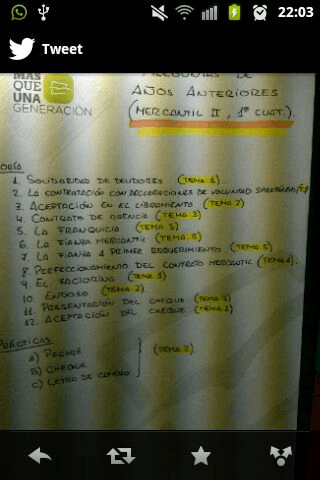 22:03
Tweet
MÁS
QUE
UNA
GENERACIÓN
PREGUNTAS DE
AÑOS ANTERIORES
(MERCANTIL II, 1º CUAT.)
1. SOLIDARIDAD DE DEUDORES (TEMA 1).
2. LA CONTRATACIÓN CON DECLARACIONES DE VOLUNTAD
3. ACEPTACIÓN EN EL LIBRAMIENTO (TEMA 2)
4. CONTRATO DE AGENCIA (TEMA 3)
5. LA FRANQUICIA (TEMA 3)
6. LA FIANZA MERCANTIL (TEMA 5)
7. LA FIANZA A PRIMER REQUERIMIENTO (TEMA 5)
8. PERFECCIONAMIENTO DEL CONTRATO MERCANTIL (TEMA 1).
9. EL FACTORING (TEMA 3)
10. ENDOSO (TEMA 2)
11. PRESENTACIÓN DEL CHEQUE
12. ACEPTACIÓN DEL CHEQUE (TEMA 2)
PRÁCTICAS
A) PAGARÉ
B) CHEQUE (TEMA 2)
C) LETRA DE CAMBIO